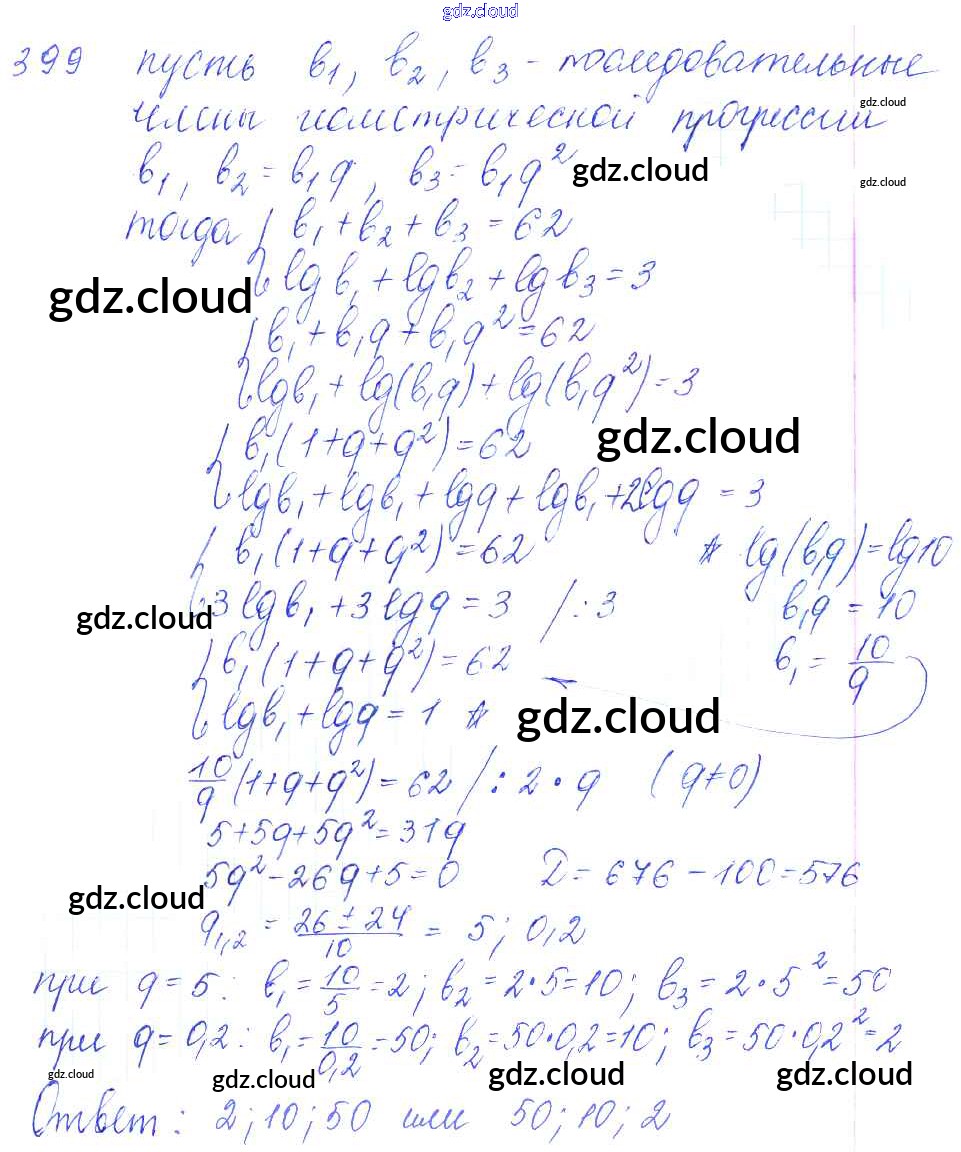 gdz.cloud
399 пусть b₁, b₂, b₃ - последовательные
gdz.cloud
члены геометрической прогрессии
b₁, b₂ = b₁q, b₃ = b₁q² gdz.cloud gdz.cloud
тогда { b₁ + b₂ + b₃ = 62
lg b₁ + lg b₂ + lg b₃ = 3
gdz.cloud
{ b₁ + b₁q + b₁q² = 62
lg b₁ + lg(b₁q) + lg(b₁q²) = 3
{ b₁(1+q+q²) = 62 gdz.cloud
lg b₁ + lg b₁ + lg q + lg b₁ + 2lg q = 3
{ b₁(1+q+q²) = 62 * lg(b₁q) = lg10
3 lg b₁ + 3 lg q = 3 /:3 b₁q = 10
gdz.cloud
{ b₁(1+q+q²) = 62 b₁ = 10/q
lg b₁ + lg q = 1 * gdz.cloud
10/q (1+q+q²) = 62 /: 2 · q (q≠0)
5+5q+5q² = 31q
5q² - 26q + 5 = 0 D = 676 - 100 = 576
gdz.cloud
q₁,₂ = (26 ± 24)/10 = 5; 0,2
при q = 5: b₁ = 10/5 = 2; b₂ = 2·5 = 10; b₃ = 2·5² = 50
при q = 0,2: b₁ = 10/0,2 = 50; b₂ = 50·0,2 = 10; b₃ = 50·0,2² = 2
gdz.cloud gdz.cloud gdz.cloud gdz.cloud
Ответ: 2; 10; 50 или 50; 10; 2